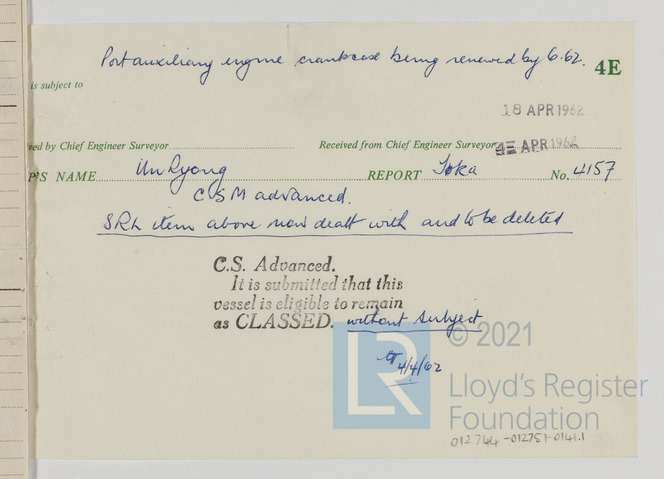 Port auxiliary engine crankcase being renewed by 6.62.
4E
is subject to
18 APR 1962
ved by Chief Engineer Surveyor
Received from Chief Engineer Surveyor
APR 1962
P'S NAME Un Ryong REPORT No. 4157
CSM advanced.
SRL item above now dealt with and to be deleted
C.S. Advanced.
It is submitted that this
vessel is eligible to remain
as CLASSED. without subject
4/4/62
LR
© 2021
Lloyd's Register
Foundation
012744-012751-0141.1